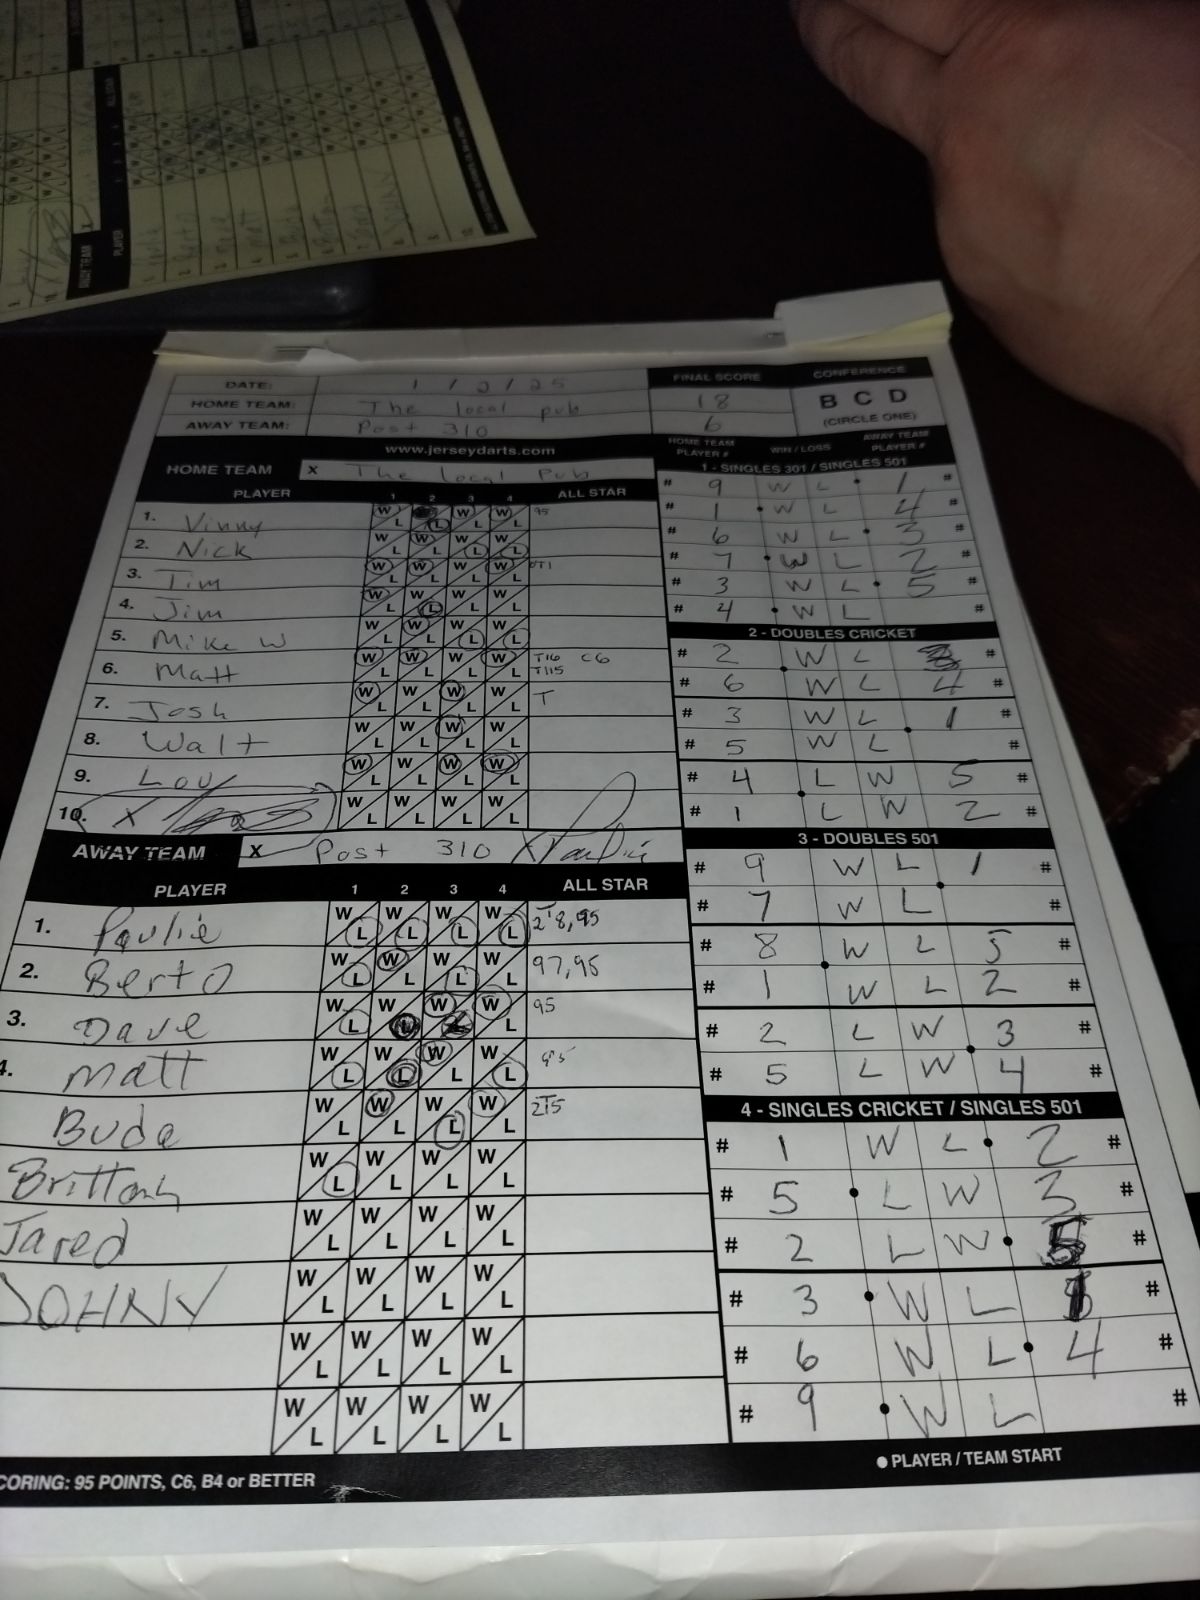 DATE: 1 / 2 / 25
HOME TEAM: The local pub
AWAY TEAM: Post 310
FINAL SCORE
18
6
CONFERENCE
B C D
(CIRCLE ONE)
www.jerseydarts.com
HOME TEAM X The Local Pub
PLAYER 1 2 3 4 ALL STAR
1. Vinny W L W L W L W L 95
2. Nick W L W L W L W L
3. Tim W L W L W L W L
4. Jim W L W L W L W L
5. Mike W W L W L W L W L
6. Matt W L W L W L W L T16 C6
T115
7. Josh W L W L W L W L T
8. Walt W L W L W L W L
9. Lou W L W L W L W L
10. X W L W L W L W L
AWAY TEAM X Post 310 X Paulie
PLAYER 1 2 3 4 ALL STAR
1. Paulie W L W L W L W L 2T8, 95
2. Berto W L W L W L W L 97, 95
3. Dave W L W L W L W L 95
4. Matt W L W L W L W L 95
Buda W L W L W L W L 2T5
Brittany W L W L W L W L
Jared W L W L W L W L
JOHNY W L W L W L W L
W L W L W L W L
W L W L W L W L
CORING: 95 POINTS, C6, B4 or BETTER
HOME TEAM PLAYER # WIN / LOSS AWAY TEAM PLAYER #
1 - SINGLES 301 / SINGLES 501
# 9 W L 1 #
# 1 W L 4 #
# 6 W L 3 #
# 7 W L 2 #
# 3 W L 5 #
# 4 W L #
2 - DOUBLES CRICKET
# 2 W L 3 #
# 6 W L 4 #
# 3 W L 1 #
# 5 W L #
# 4 L W 5 #
# 1 L W 2 #
3 - DOUBLES 501
# 9 W L 1 #
# 7 W L #
# 8 W L 5 #
# 1 W L 2 #
# 2 L W 3 #
# 5 L W 4 #
4 - SINGLES CRICKET / SINGLES 501
# 1 W L 2 #
# 5 L W 3 #
# 2 L W 5 #
# 3 W L 1 #
# 6 W L 4 #
# 9 W L #
● PLAYER / TEAM START
AWAY TEAM X
PLAYER
ALL STAR